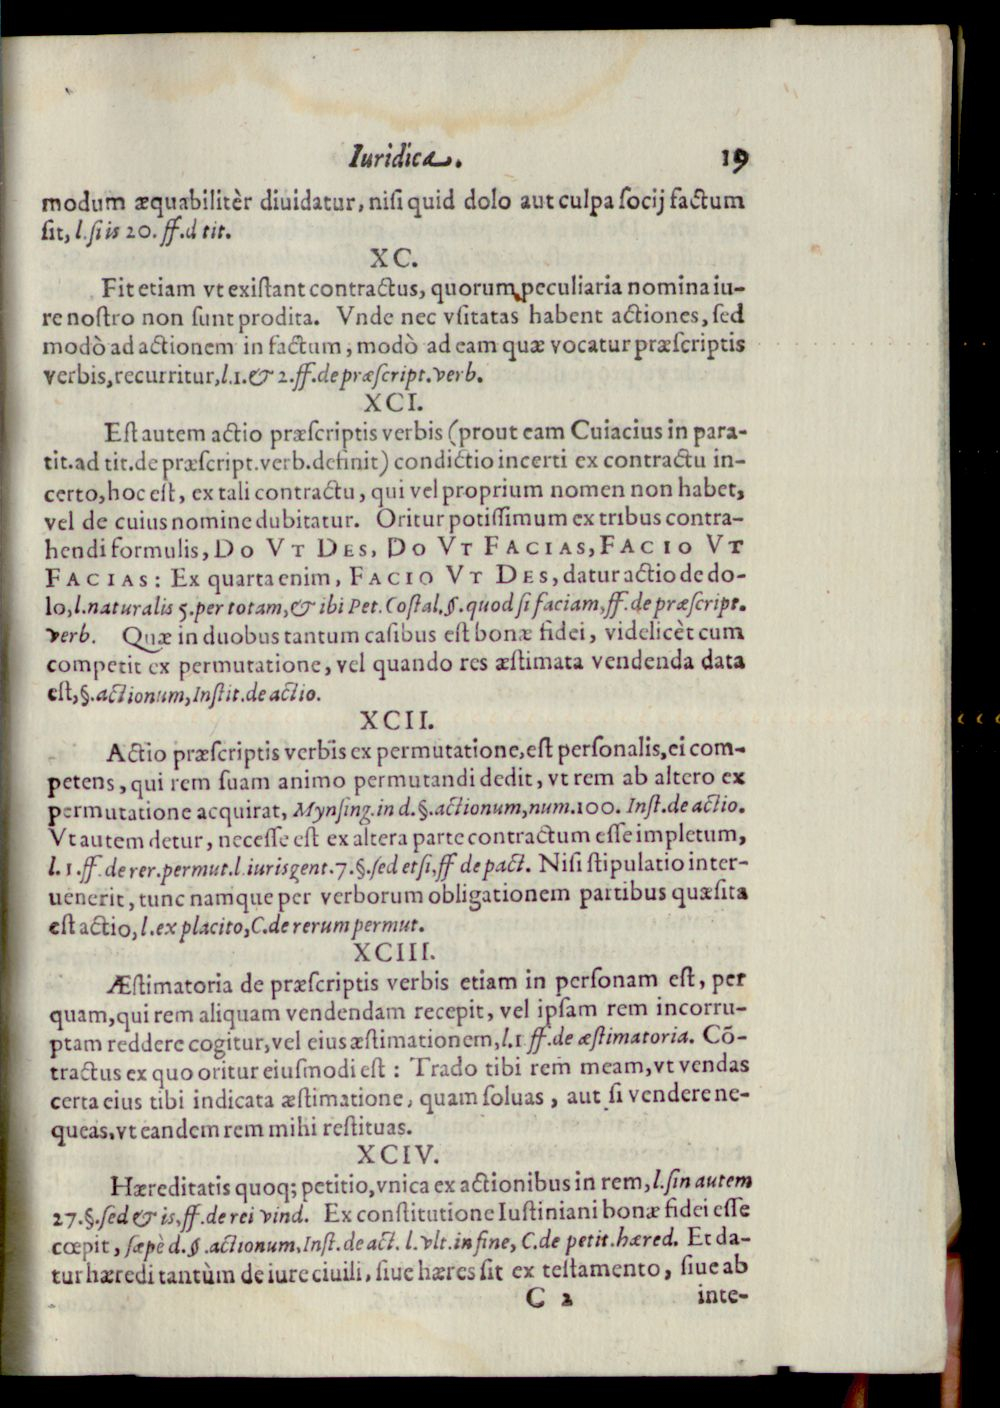 Iuridicæ. 19
modum æquabilitèr diuidatur, nisi quid dolo aut culpa socij factum
sit, l. si is 20. ff. d tit.
XC.
Fit etiam vt existant contractus, quorum peculiaria nomina iu-
re nostro non sunt prodita. Vnde nec vsitatas habent actiones, sed
modò ad actionem in factum, modò ad eam quæ vocatur præscriptis
verbis, recurritur, l. 1. & 2. ff. de præscript. verb.
XCI.
Est autem actio præscriptis verbis (prout eam Cuiacius in para-
tit. ad tit. de præscript. verb. definit) condictio incerti ex contractu in-
certo, hoc est, ex tali contractu, qui vel proprium nomen non habet,
vel de cuius nomine dubitatur. Oritur potissimum ex tribus contra-
hendi formulis, DO VT DES, DO VT FACIAS, FACIO VT
FACIAS: Ex quarta enim, FACIO VT DES, datur actio de do-
lo, l. naturalis 5. per totam, & ibi Pet. Costal. §. quod si faciam, ff. de præscript.
verb. Quæ in duobus tantum casibus est bonæ fidei, videlicèt cum
competit ex permutatione, vel quando res æstimata vendenda data
est, §. actionum, Instit. de actio.
XCII.
Actio præscriptis verbis ex permutatione, est personalis, ei com-
petens, qui rem suam animo permutandi dedit, vt rem ab altero ex
permutatione acquirat, Mynsing. in d. §. actionum, num. 100. Inst. de actio.
Vt autem detur, necesse est ex altera parte contractum esse impletum,
l. 1. ff. de rer. permut. l. iurisgent. 7. §. sed etsi, ff de pact. Nisi stipulatio inter-
uenerit, tunc namque per verborum obligationem partibus quæsita
est actio, l. ex placito, C. de rerum permut.
XCIII.
Æstimatoria de præscriptis verbis etiam in personam est, per
quam, qui rem aliquam vendendam recepit, vel ipsam rem incorru-
ptam reddere cogitur, vel eius æstimationem, l. 1 ff. de æstimatoria. Cõ-
tractus ex quo oritur eiusmodi est: Trado tibi rem meam, vt vendas
certa eius tibi indicata æstimatione, quam soluas, aut si vendere ne-
queas, vt eandem rem mihi restituas.
XCIV.
Hæreditatis quoq; petitio, vnica ex actionibus in rem, l. sin autem
27. §. sed & is, ff. de rei vind. Ex constitutione Iustiniani bonæ fidei esse
cœpit, sæpè d. §. actionum, Inst. de act. l. vlt. in fine, C. de petit. hæred. Et da-
tur hæredi tantùm de iure ciuili, siue hæres sit ex testamento, siue ab
C 2 inte-